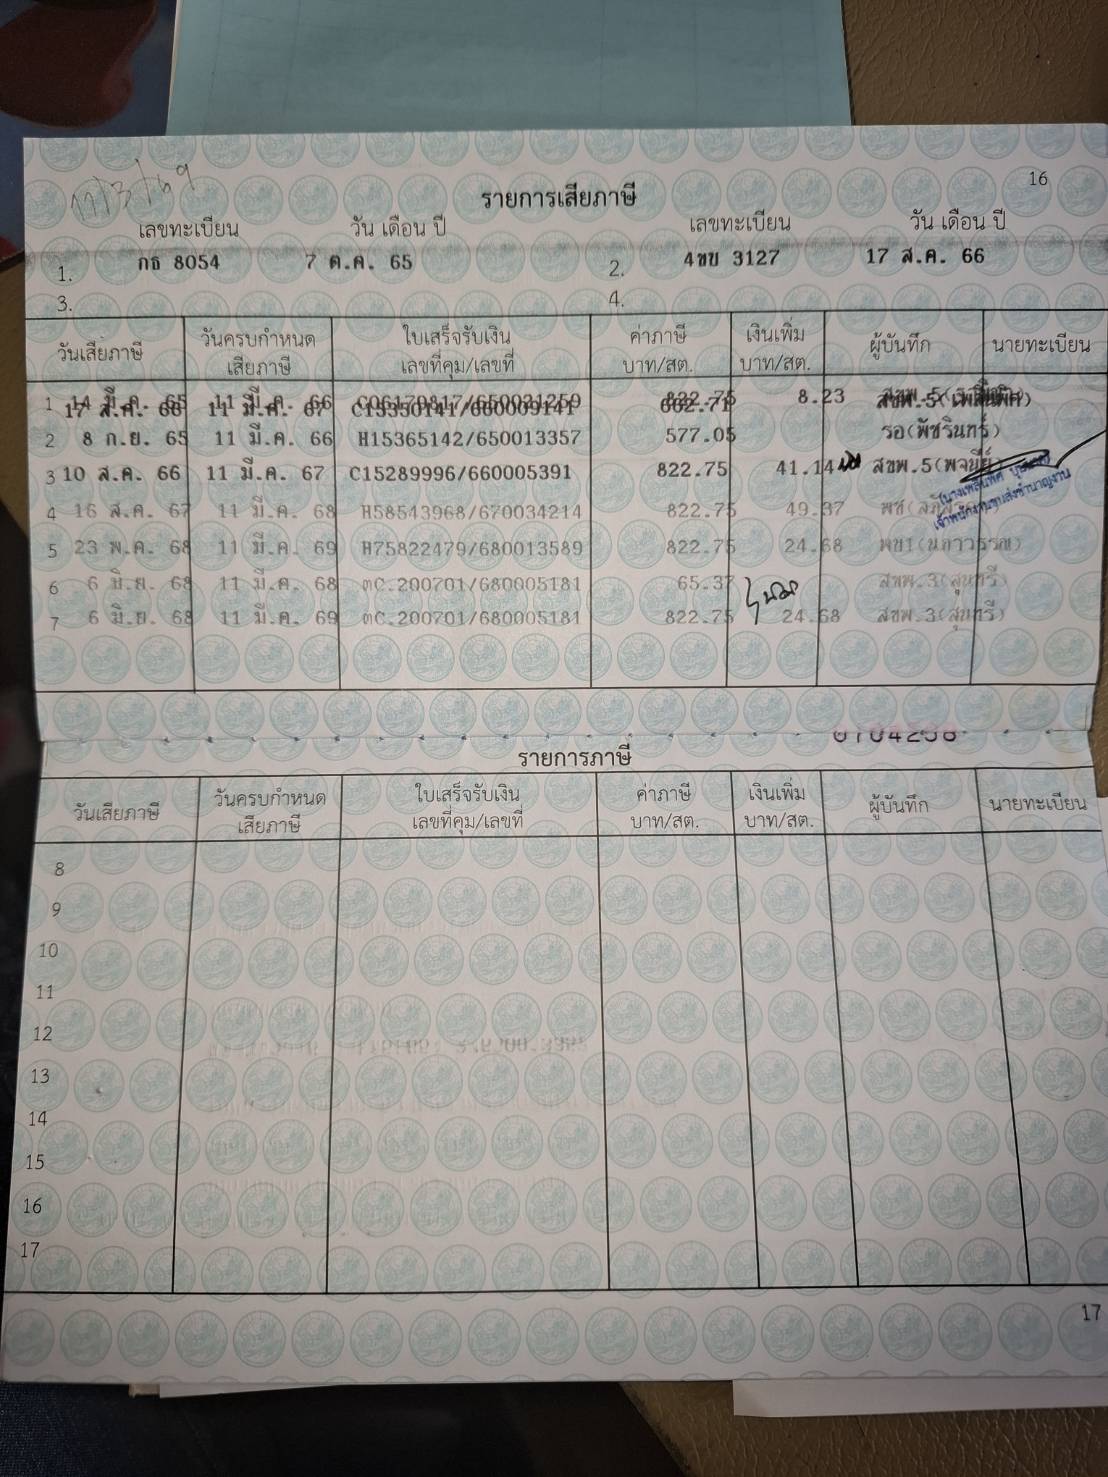 11/3/69
16
รายการเสียภาษี
เลขทะเบียน วัน เดือน ปี เลขทะเบียน วัน เดือน ปี
1. กธ 8054 7 ต.ค. 65 2. 4ขข 3127 17 ส.ค. 66
3. 4.
วันเสียภาษี วันครบกำหนดเสียภาษี ใบเสร็จรับเงิน เลขที่คุม/เลขที่ ค่าภาษี บาท/สต. เงินเพิ่ม บาท/สต. ผู้บันทึก นายทะเบียน
1 14 มี.ค. 65 11 มี.ค. 66 822.75 8.23
17 ส.ค. 66 11 มี.ค. 67 662.71
2 8 ก.ย. 65 11 มี.ค. 66 H15365142/650013357 577.05 รอ(พัชรินทร์)
3 10 ส.ค. 66 11 มี.ค. 67 C15289996/660005391 822.75 41.14 สขพ.5(พจนีย์)
4 16 ส.ค. 67 11 มี.ค. 68 H58543968/670034214 822.75 49.37
5 23 พ.ค. 68 11 มี.ค. 69 H75822479/680013589 822.75 24.68
6 6 มิ.ย. 68 11 มี.ค. 68 ตC.200701/680005181 65.37 สขพ.3(สุนทรี)
7 6 มิ.ย. 68 11 มี.ค. 69 ตC.200701/680005181 822.75 24.68 สขพ.3(สุนทรี)
รายการภาษี
วันเสียภาษี วันครบกำหนดเสียภาษี ใบเสร็จรับเงิน เลขที่คุม/เลขที่ ค่าภาษี บาท/สต. เงินเพิ่ม บาท/สต. ผู้บันทึก นายทะเบียน
8
9
10
11
12
13
14
15
16
17
17